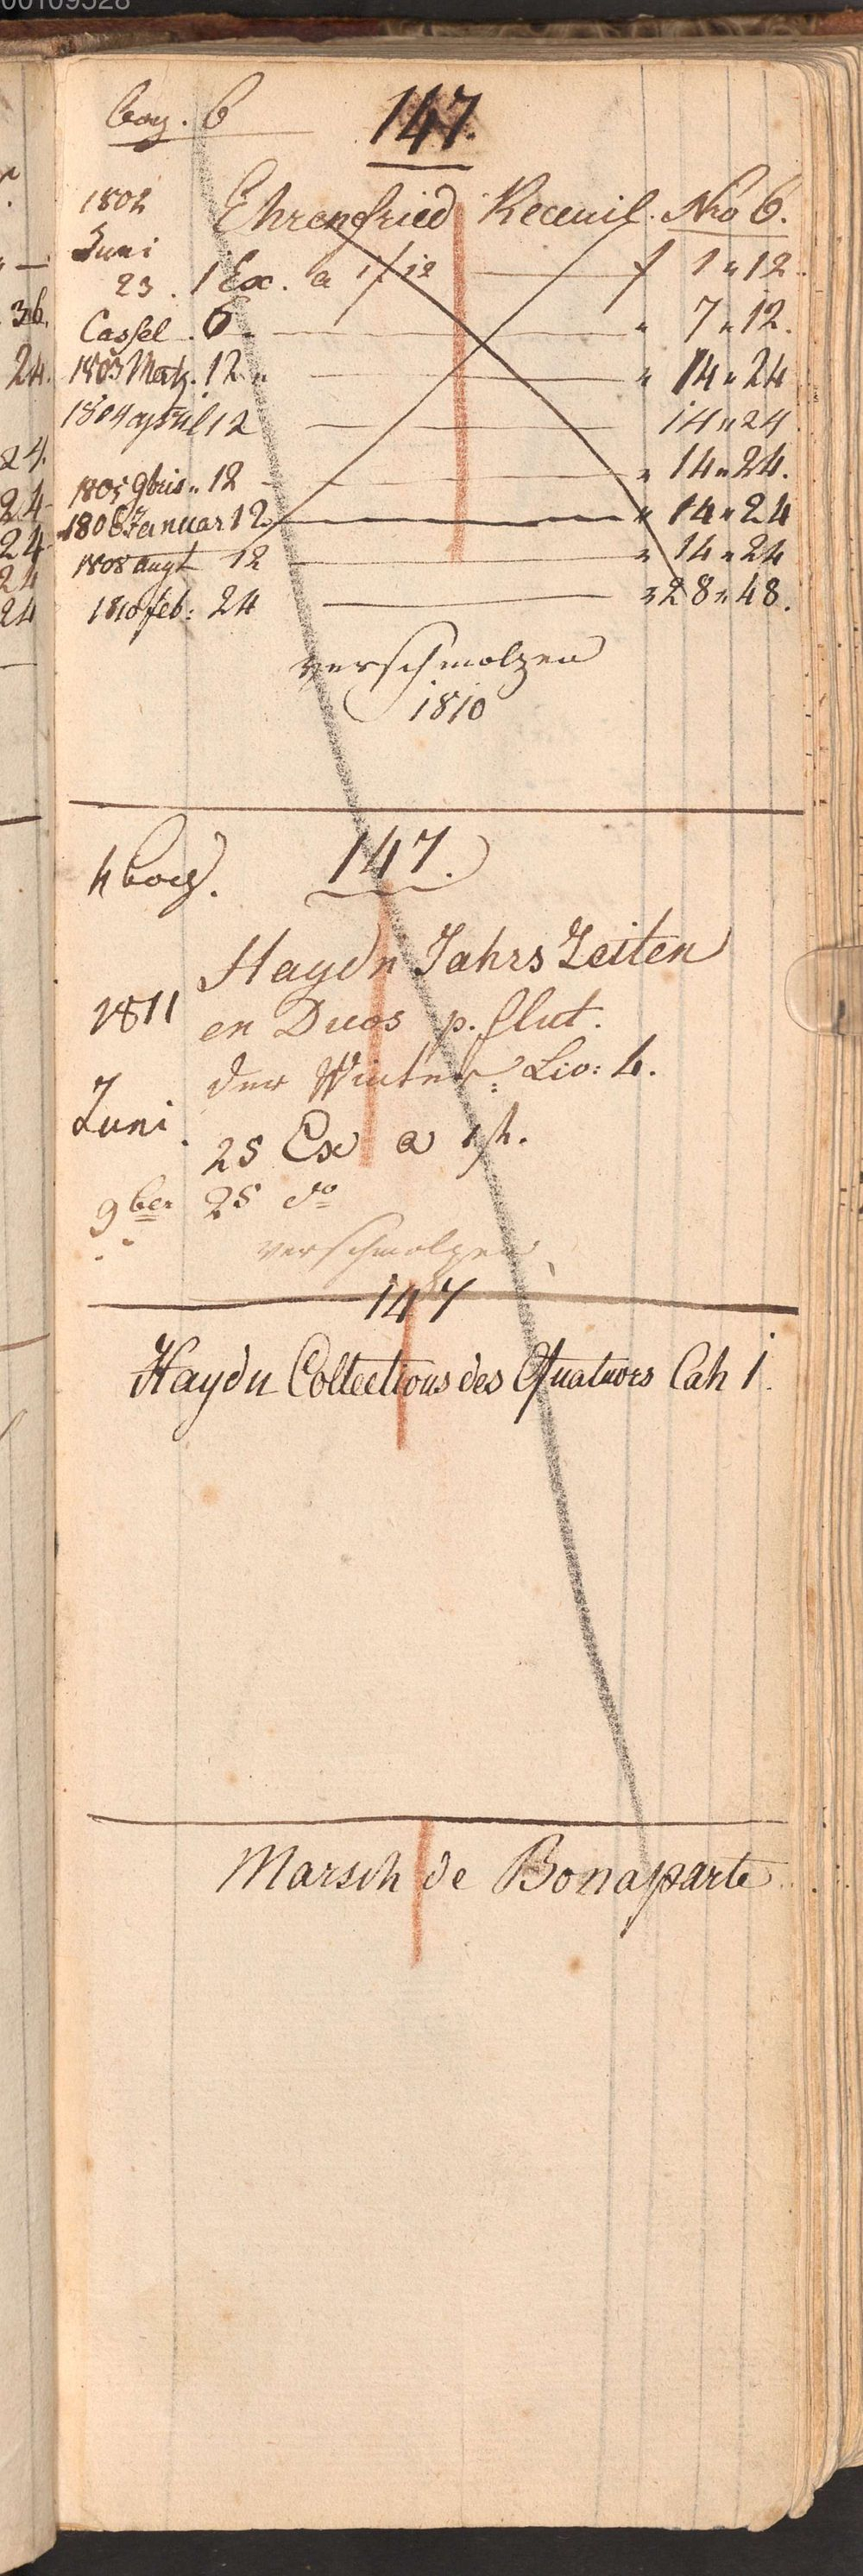 00109528
bog. 6
147.
1802 Ehrenfried Receuil. Nro 6.
Juni
23. 1 Ex. a 1f 12 — f 1 " 12.
Cassel. 6 — " 7 " 12.
1803 Merz. 12 " — " 14 " 24
1804 april 12 — 14 " 24
1805 9bris " 12 — " 14 " 24.
1806 Januar 12. — " 14 " 24
1808 augt 12 — " 14 " 24
1810 feb: 24 — " 28 " 48.
verschmolzen
1810
4 bog. 147.
Haydn Jahrs Zeiten
1811 en Duos p. flut.
der Winter: Liv: 4.
Juni. 25 Ex a
9ber 25 do
verschmolzen
147
Haydn Collections des Quatuors Cah 1.
Marsch de Bonaparte
36.
24.
24.
24
24
24
24